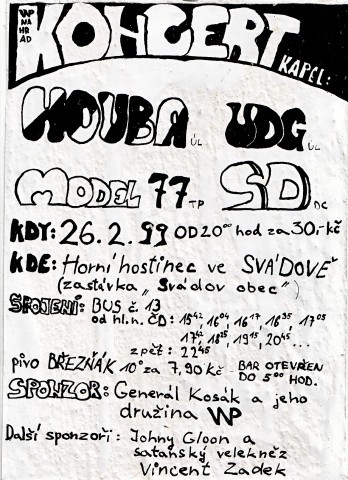 WP
NA
HR
AD
KONCERT
KAPEL:
HOUBA ÚL UDG ÚL
MODEL 77 TP SD DC
KDY: 26.2.99 OD 20⁰⁰ hod za 30,-kč
KDE: Horní hostinec ve SVÁDOVĚ
(zastávka „Svádov obec")
SPOJENÍ: BUS č. 13
od hl.n. ČD: 15⁴², 16⁰⁴, 16¹⁷, 16³⁵, 17⁰⁵
17⁴², 18⁴⁵, 19¹⁵, 20⁴⁵...
zpět: 22⁴⁵
pivo BŘEZŇÁK 10° za 7,90 kč - BAR OTEVŘEN
DO 5⁰⁰ HOD.
SPONZOR: Generál Kosák a jeho
družina WP
Další sponzoři: Johny Gloon a
satanský velekněz
Vincent Zadek